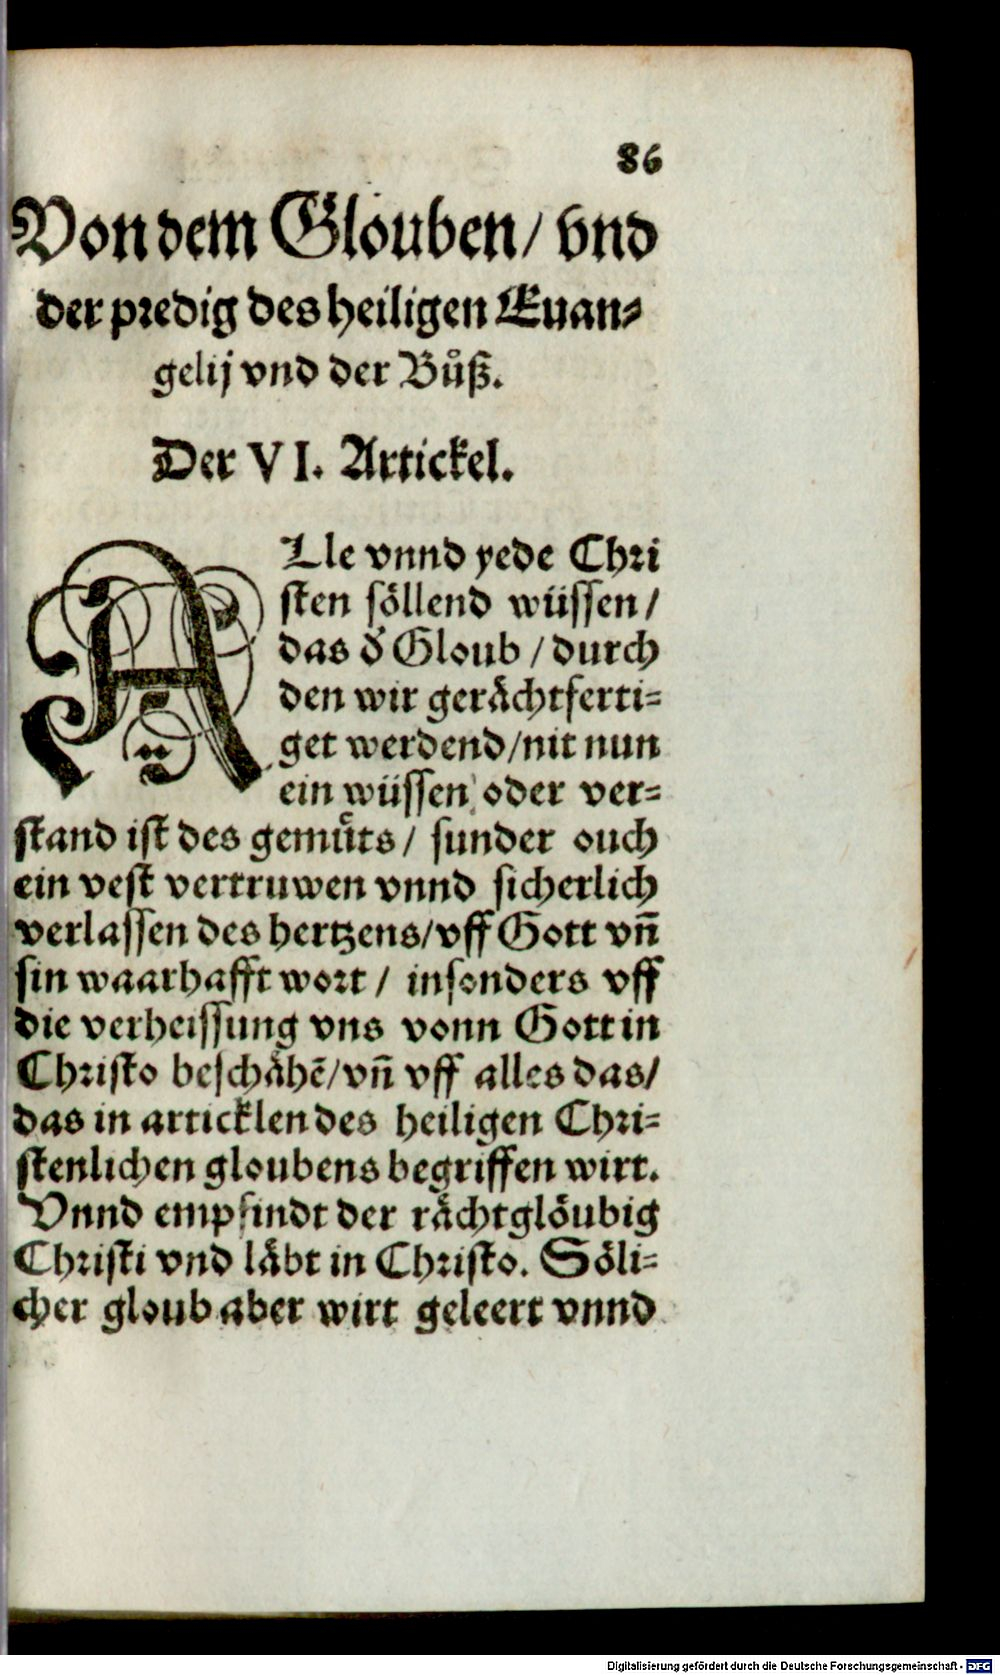 86
Von dem Glouben/ vnd
der predig des heiligen Euan⸗
gelij vnd der Bůß.
Der VI. Artickel.
ALle vnnd yede Chri
sten söllend wüssen/
das d̕ Gloub/durch
den wir gerächtferti⸗
get werdend/nit nun
ein wüssen oder ver⸗
stand ist des gemüts/ sunder ouch
ein vest vertruwen vnnd sicherlich
verlassen des hertzens/vff Gott vn̄
sin waarhafft wort/ insonders vff
die verheissung vns vonn Gott in
Christo beschähē/vn̄ vff alles das/
das in articklen des heiligen Chri⸗
stenlichen gloubens begriffen wirt.
Vnnd empfindt der rächtglöubig
Christi vnd läbt in Christo. Söli⸗
cher gloub aber wirt geleert vnnd
Digitalisierung gefördert durch die Deutsche Forschungsgemeinschaft - DFG